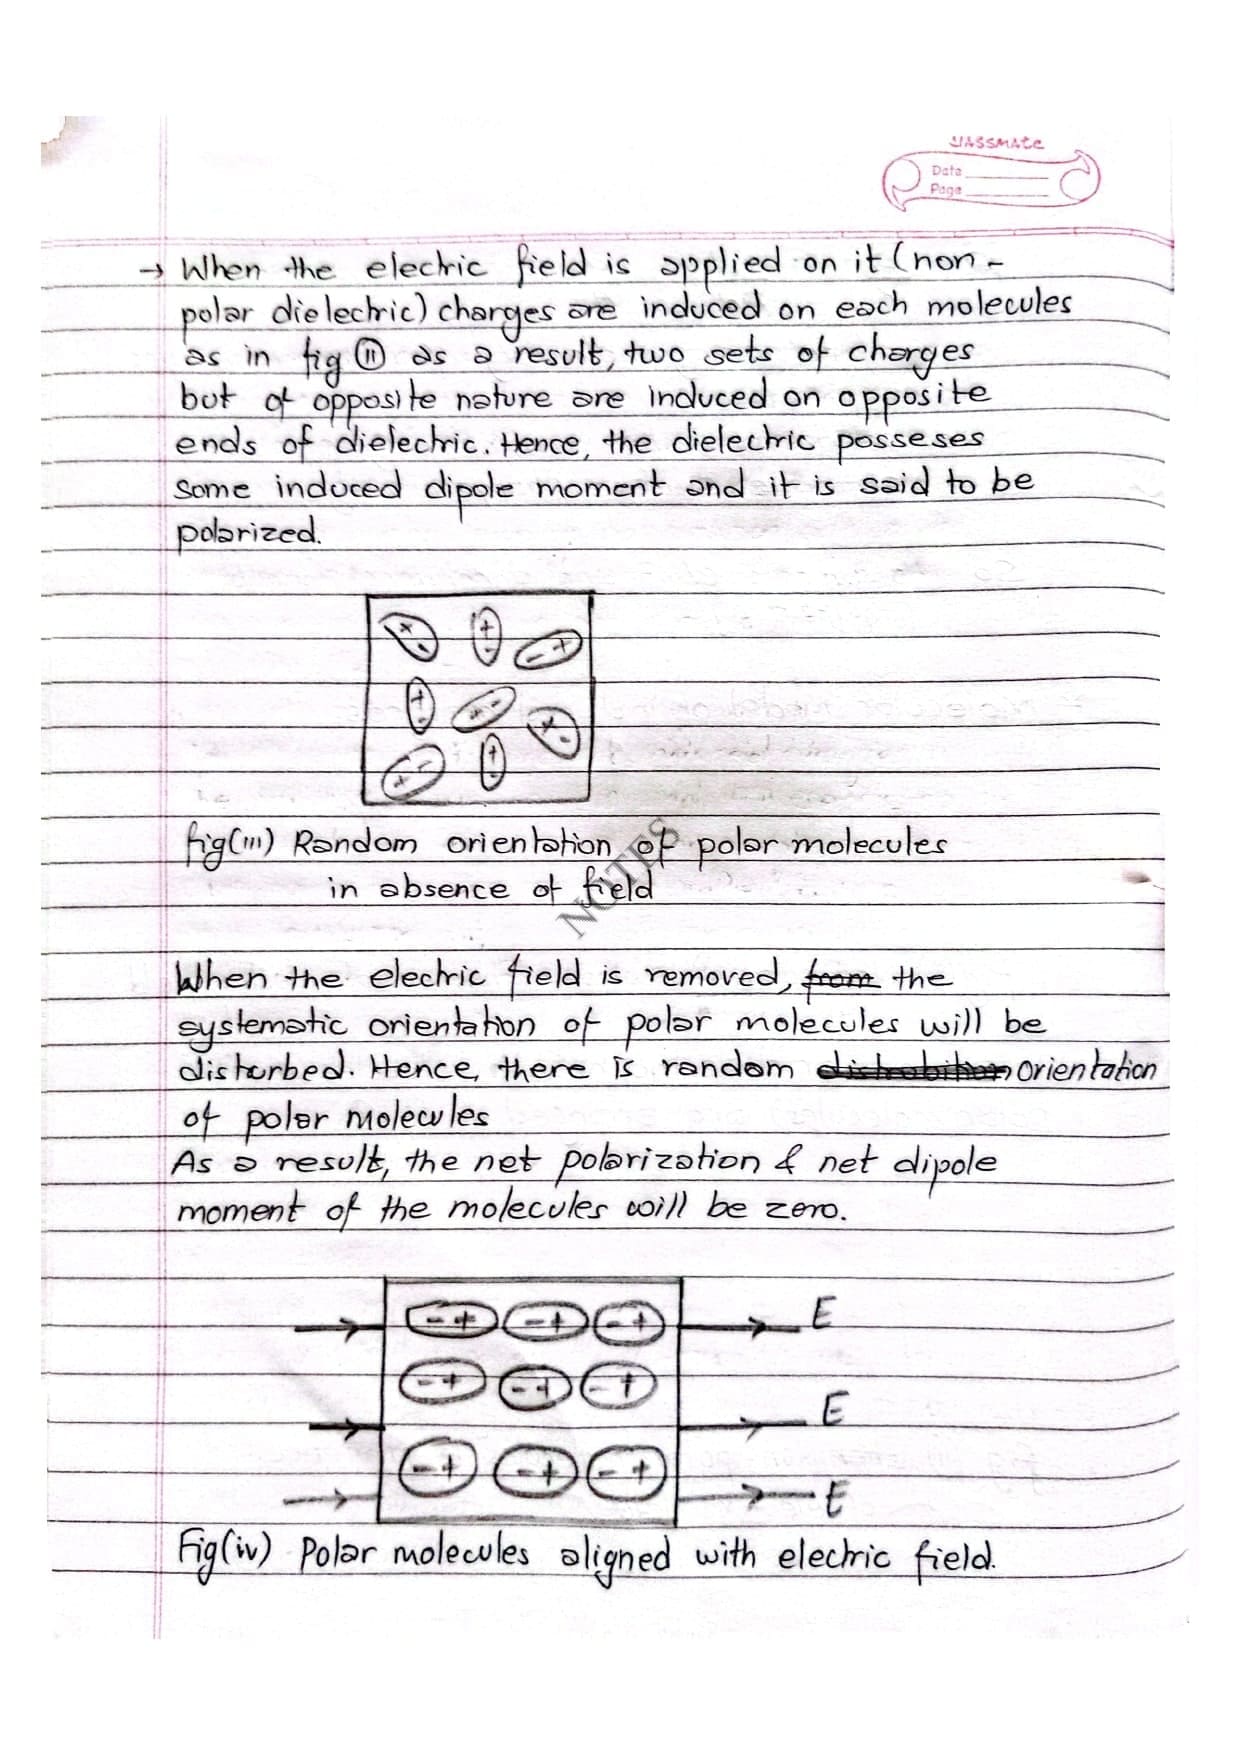 classmate
Date
Page
→ When the electric field is applied on it (non-
polar dielectric) charges are induced on each molecules
as in fig (II) as a result, two sets of charges
but of opposite nature are induced on opposite
ends of dielectric. Hence, the dielectric posseses
some induced dipole moment and it is said to be
polarized.
+ - + - - +
+ - + - + -
+ - + -
fig(iii) Random orientation of polar molecules
in absence of field
NOTES
When the electric field is removed, from the
systematic orientation of polar molecules will be
disturbed. Hence, there is random distrabition orientation
of polar molecules
As a result, the net polarization & net dipole
moment of the molecules will be zero.
- + - + - + E
- + - + - + E
- + - + - + E
Fig(iv) Polar molecules aligned with electric field.